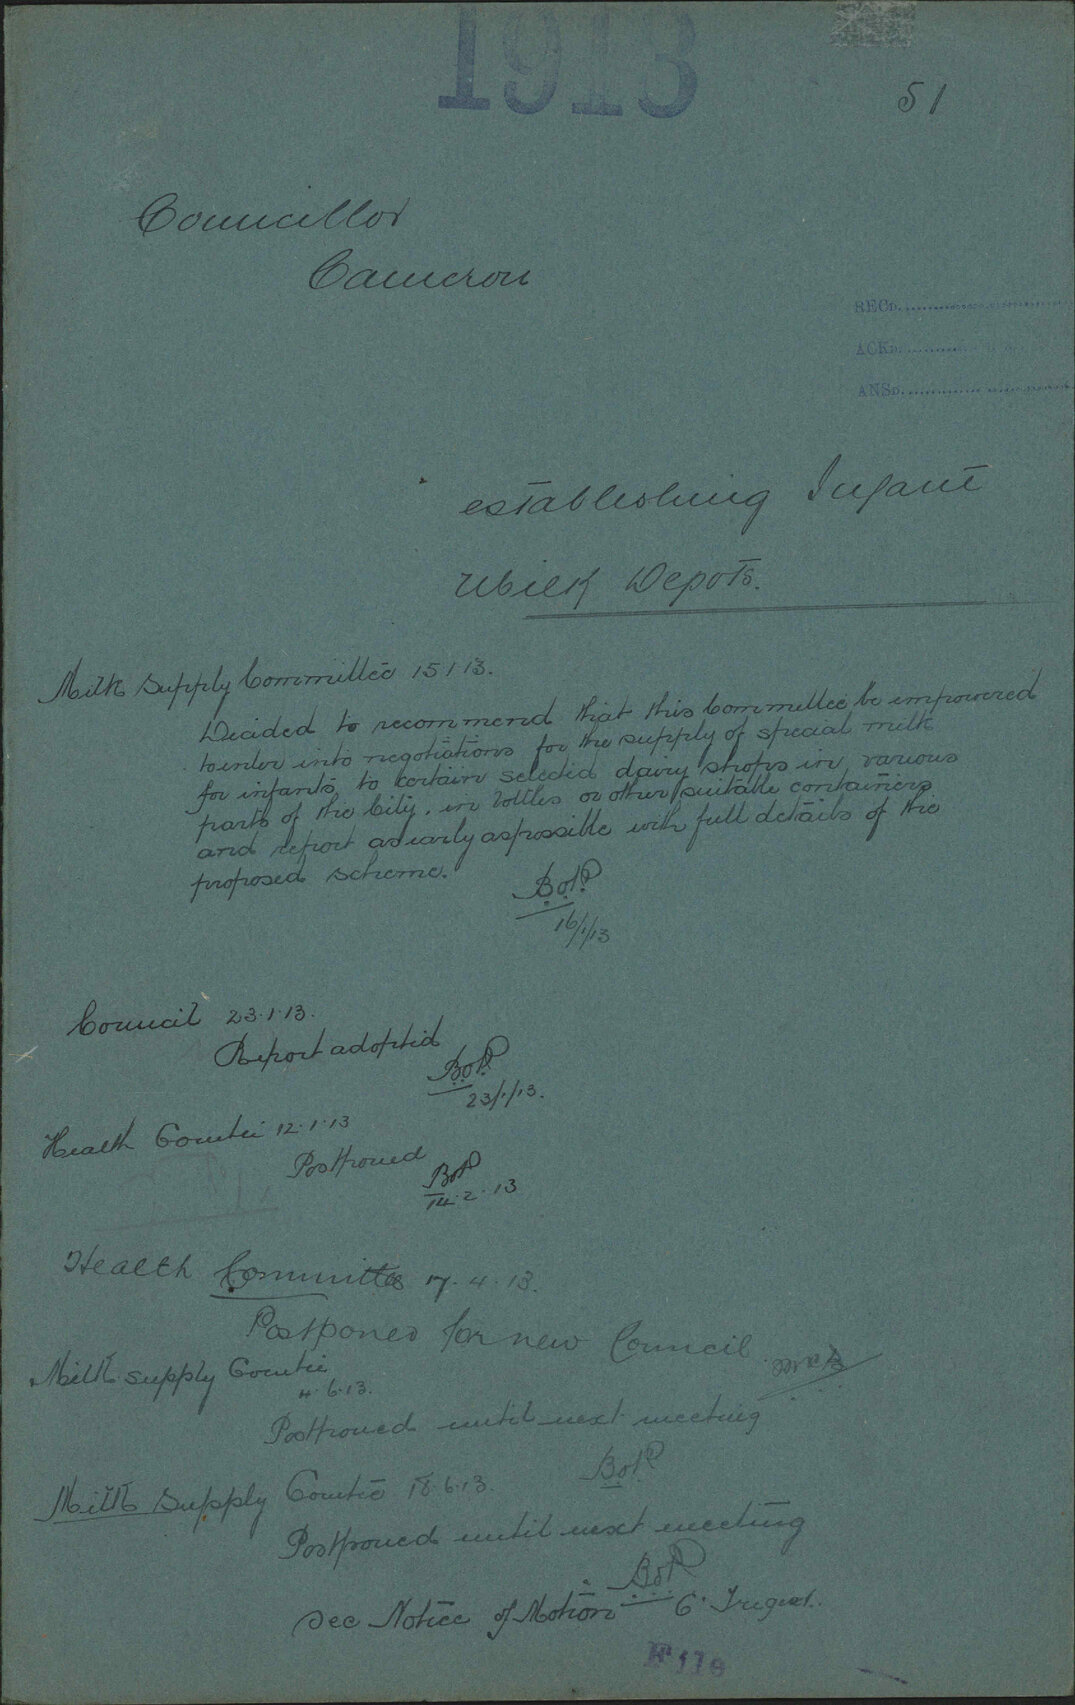 1913
51
Councillor
Cameron
RECD.
ACKD.
ANSD.
establishing Infant
Milk Depots.
Milk Supply Committee 15.1.13.
Decided to recommend that this Committee be empowered
to enter into negotiations for the supply of special milk
for infants to certain selected dairy shops in various
parts of the City, in bottles or other suitable containers,
and report as early as possible with full details of the
proposed scheme.
16/1/13
Council 23.1.13.
Report adopted
23/1/13.
Health Comtee 12.1.13
Postponed
14.2.13
Health Committee 17.4.13.
Postponed for new Council
Milk Supply Comtee
4.6.13.
Postponed until next meeting
Milk Supply Comtee 18.6.13.
Postponed until next meeting
See Notice of Motion
F 119